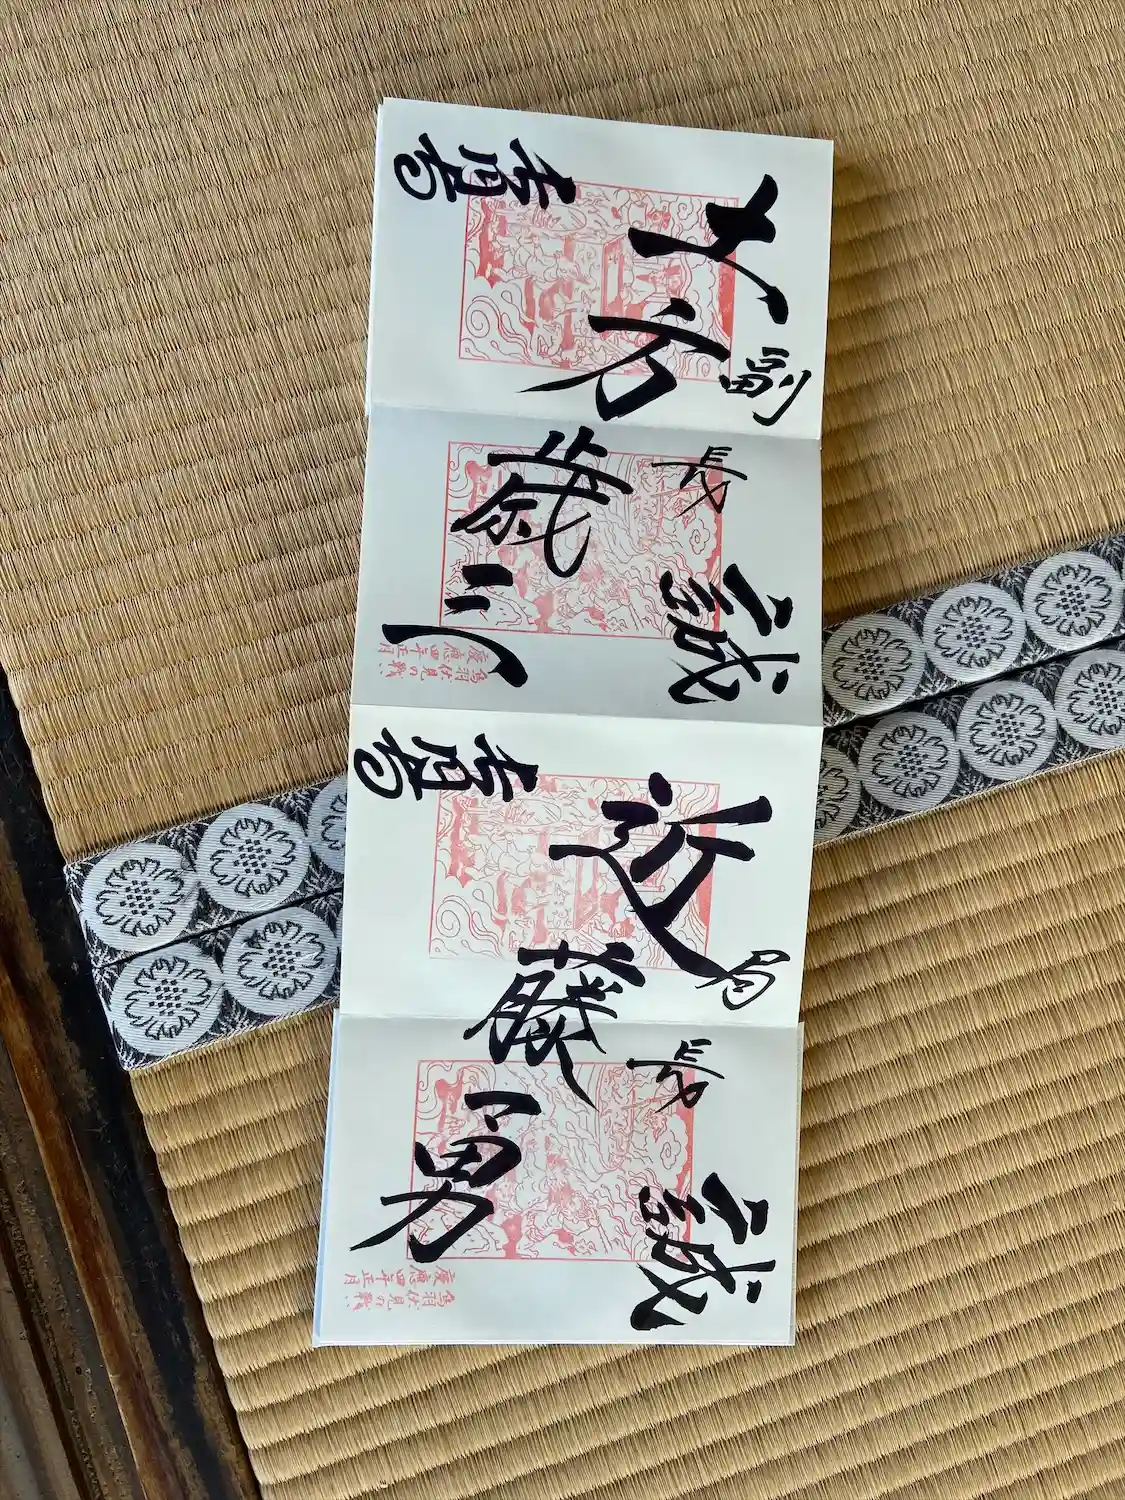 誠
副長
土方歳三
鳥羽伏見の戦い
慶應四年正月
誠
局長
近藤勇
鳥羽伏見の戦い
慶應四年正月